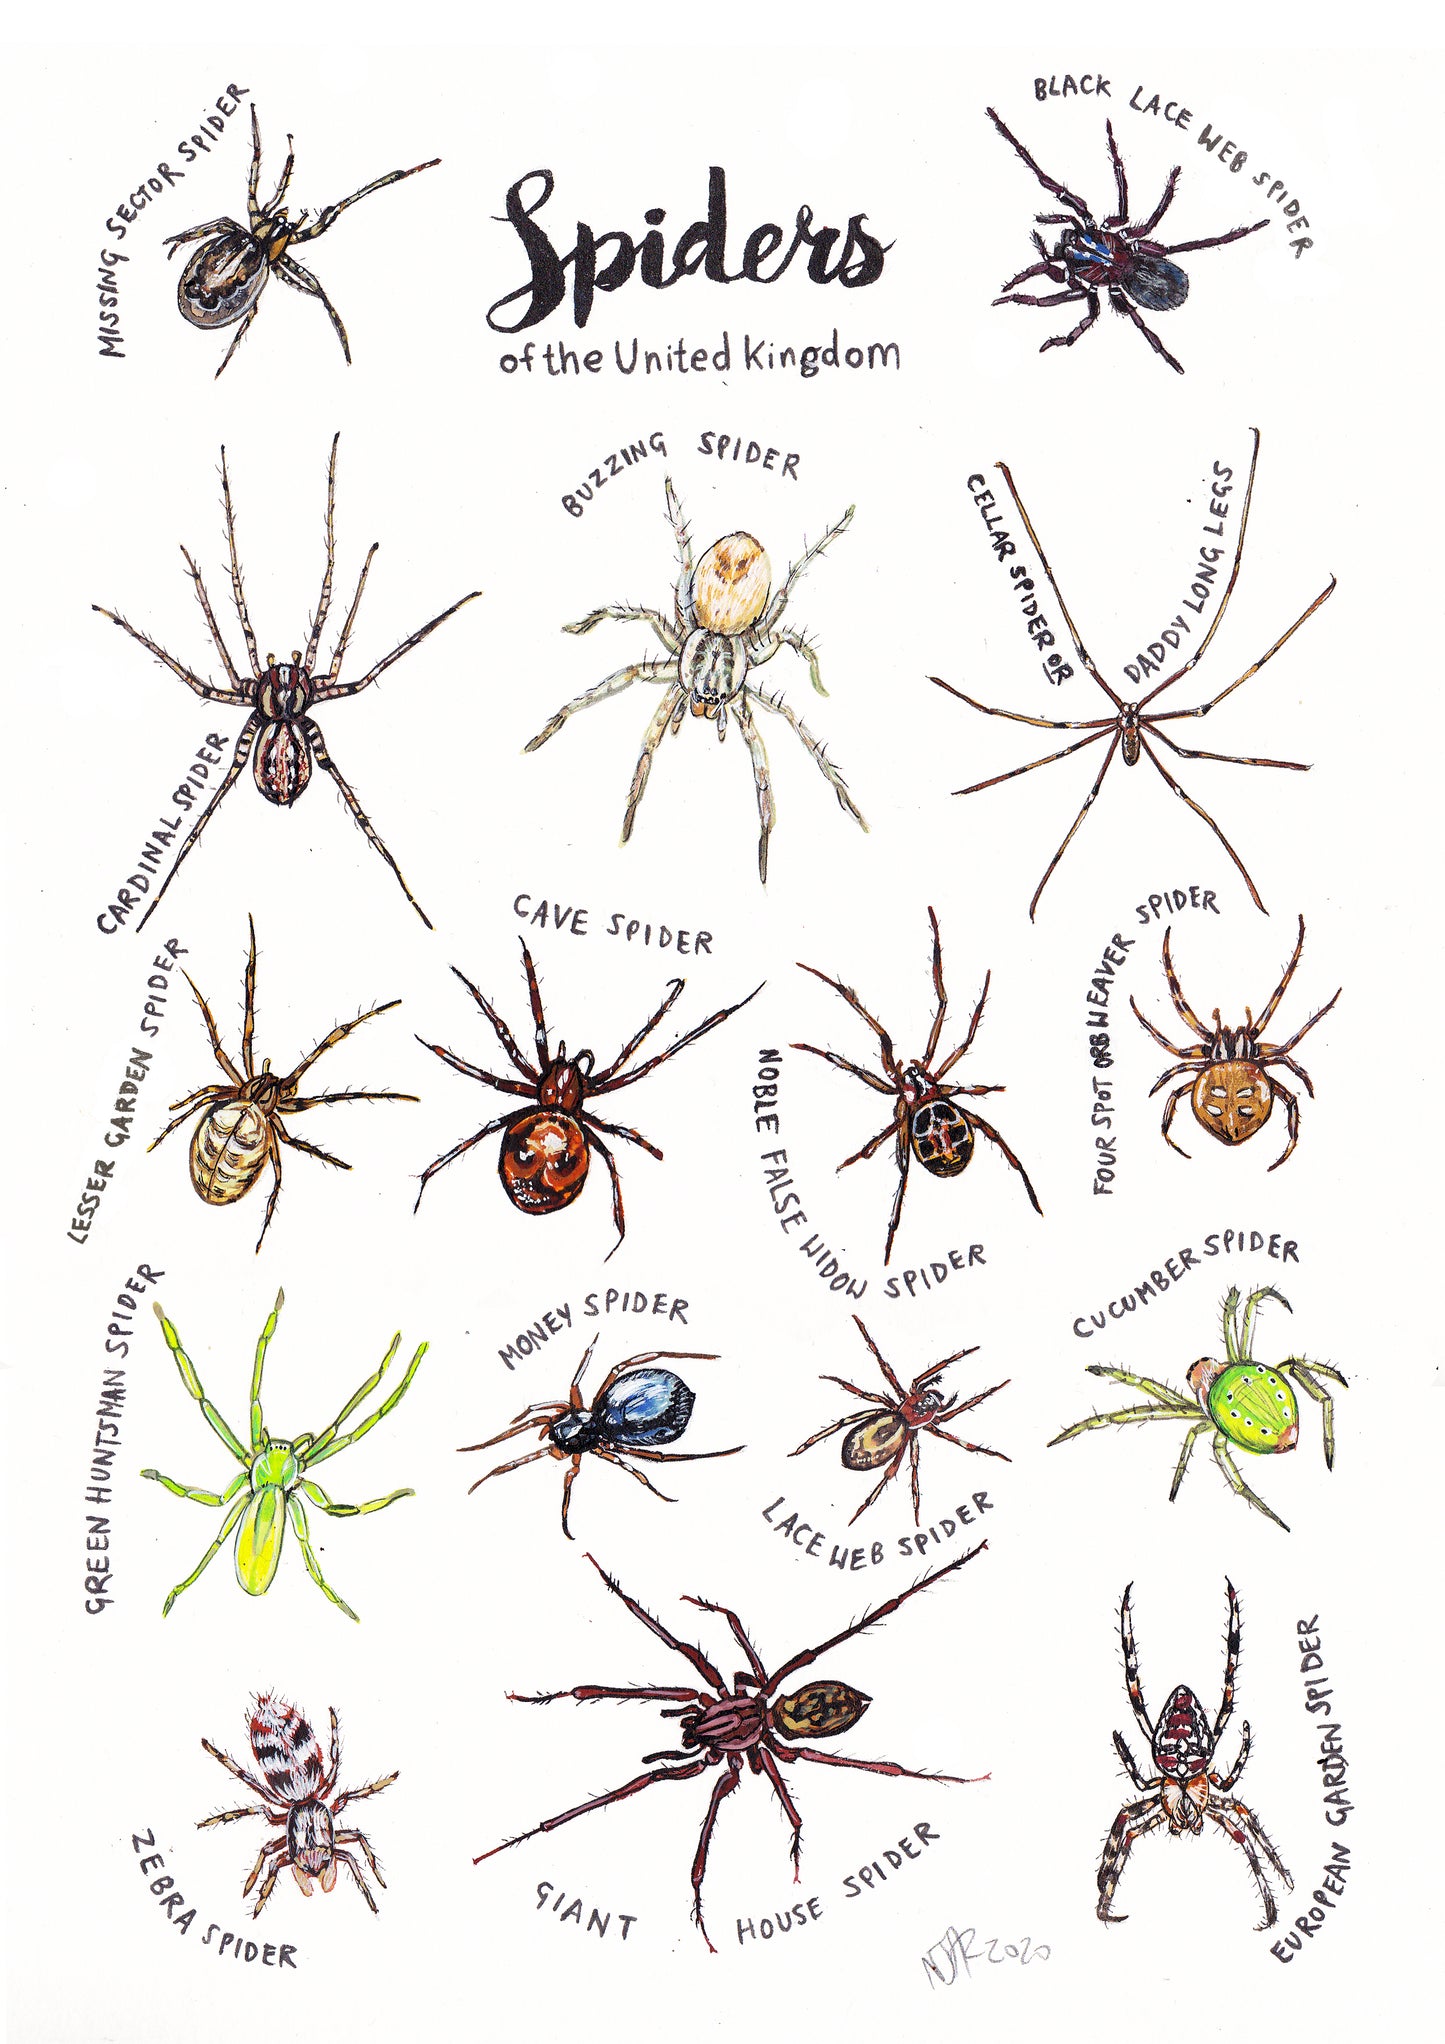 MISSING SECTOR SPIDER
Spiders
of the United Kingdom
BLACK LACE WEB SPIDER
CARDINAL SPIDER
BUZZING SPIDER
CELLAR SPIDER OR
DADDY LONG LEGS
LESSER GARDEN SPIDER
CAVE SPIDER
NOBLE FALSE WIDOW SPIDER
FOUR SPOT ORB WEAVER SPIDER
GREEN HUNTSMAN SPIDER
MONEY SPIDER
LACE WEB SPIDER
CUCUMBER SPIDER
ZEBRA SPIDER
GIANT HOUSE SPIDER
EUROPEAN GARDEN SPIDER
2020